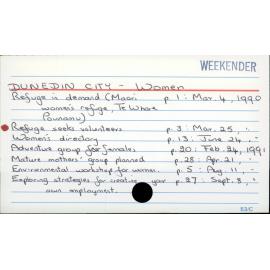 WEEKENDER
DUNEDIN CITY - Women
Refuge in demand (Maori p.1: Mar. 4, 1990
women's refuge, Te Whare
Pounamu)
Refuge seeks volunteers p.3: Mar. 25, "
Women's directory p.13: June 24, "
Adventure group for females p.20: Feb. 24, 1991
Mature mothers' group planned p.28: Apr. 21, "
Environmental workshop for women p.5: Aug. 11, "
Exploring strategies for creative year p.27: Sept. 8, "
own employment.
53/C